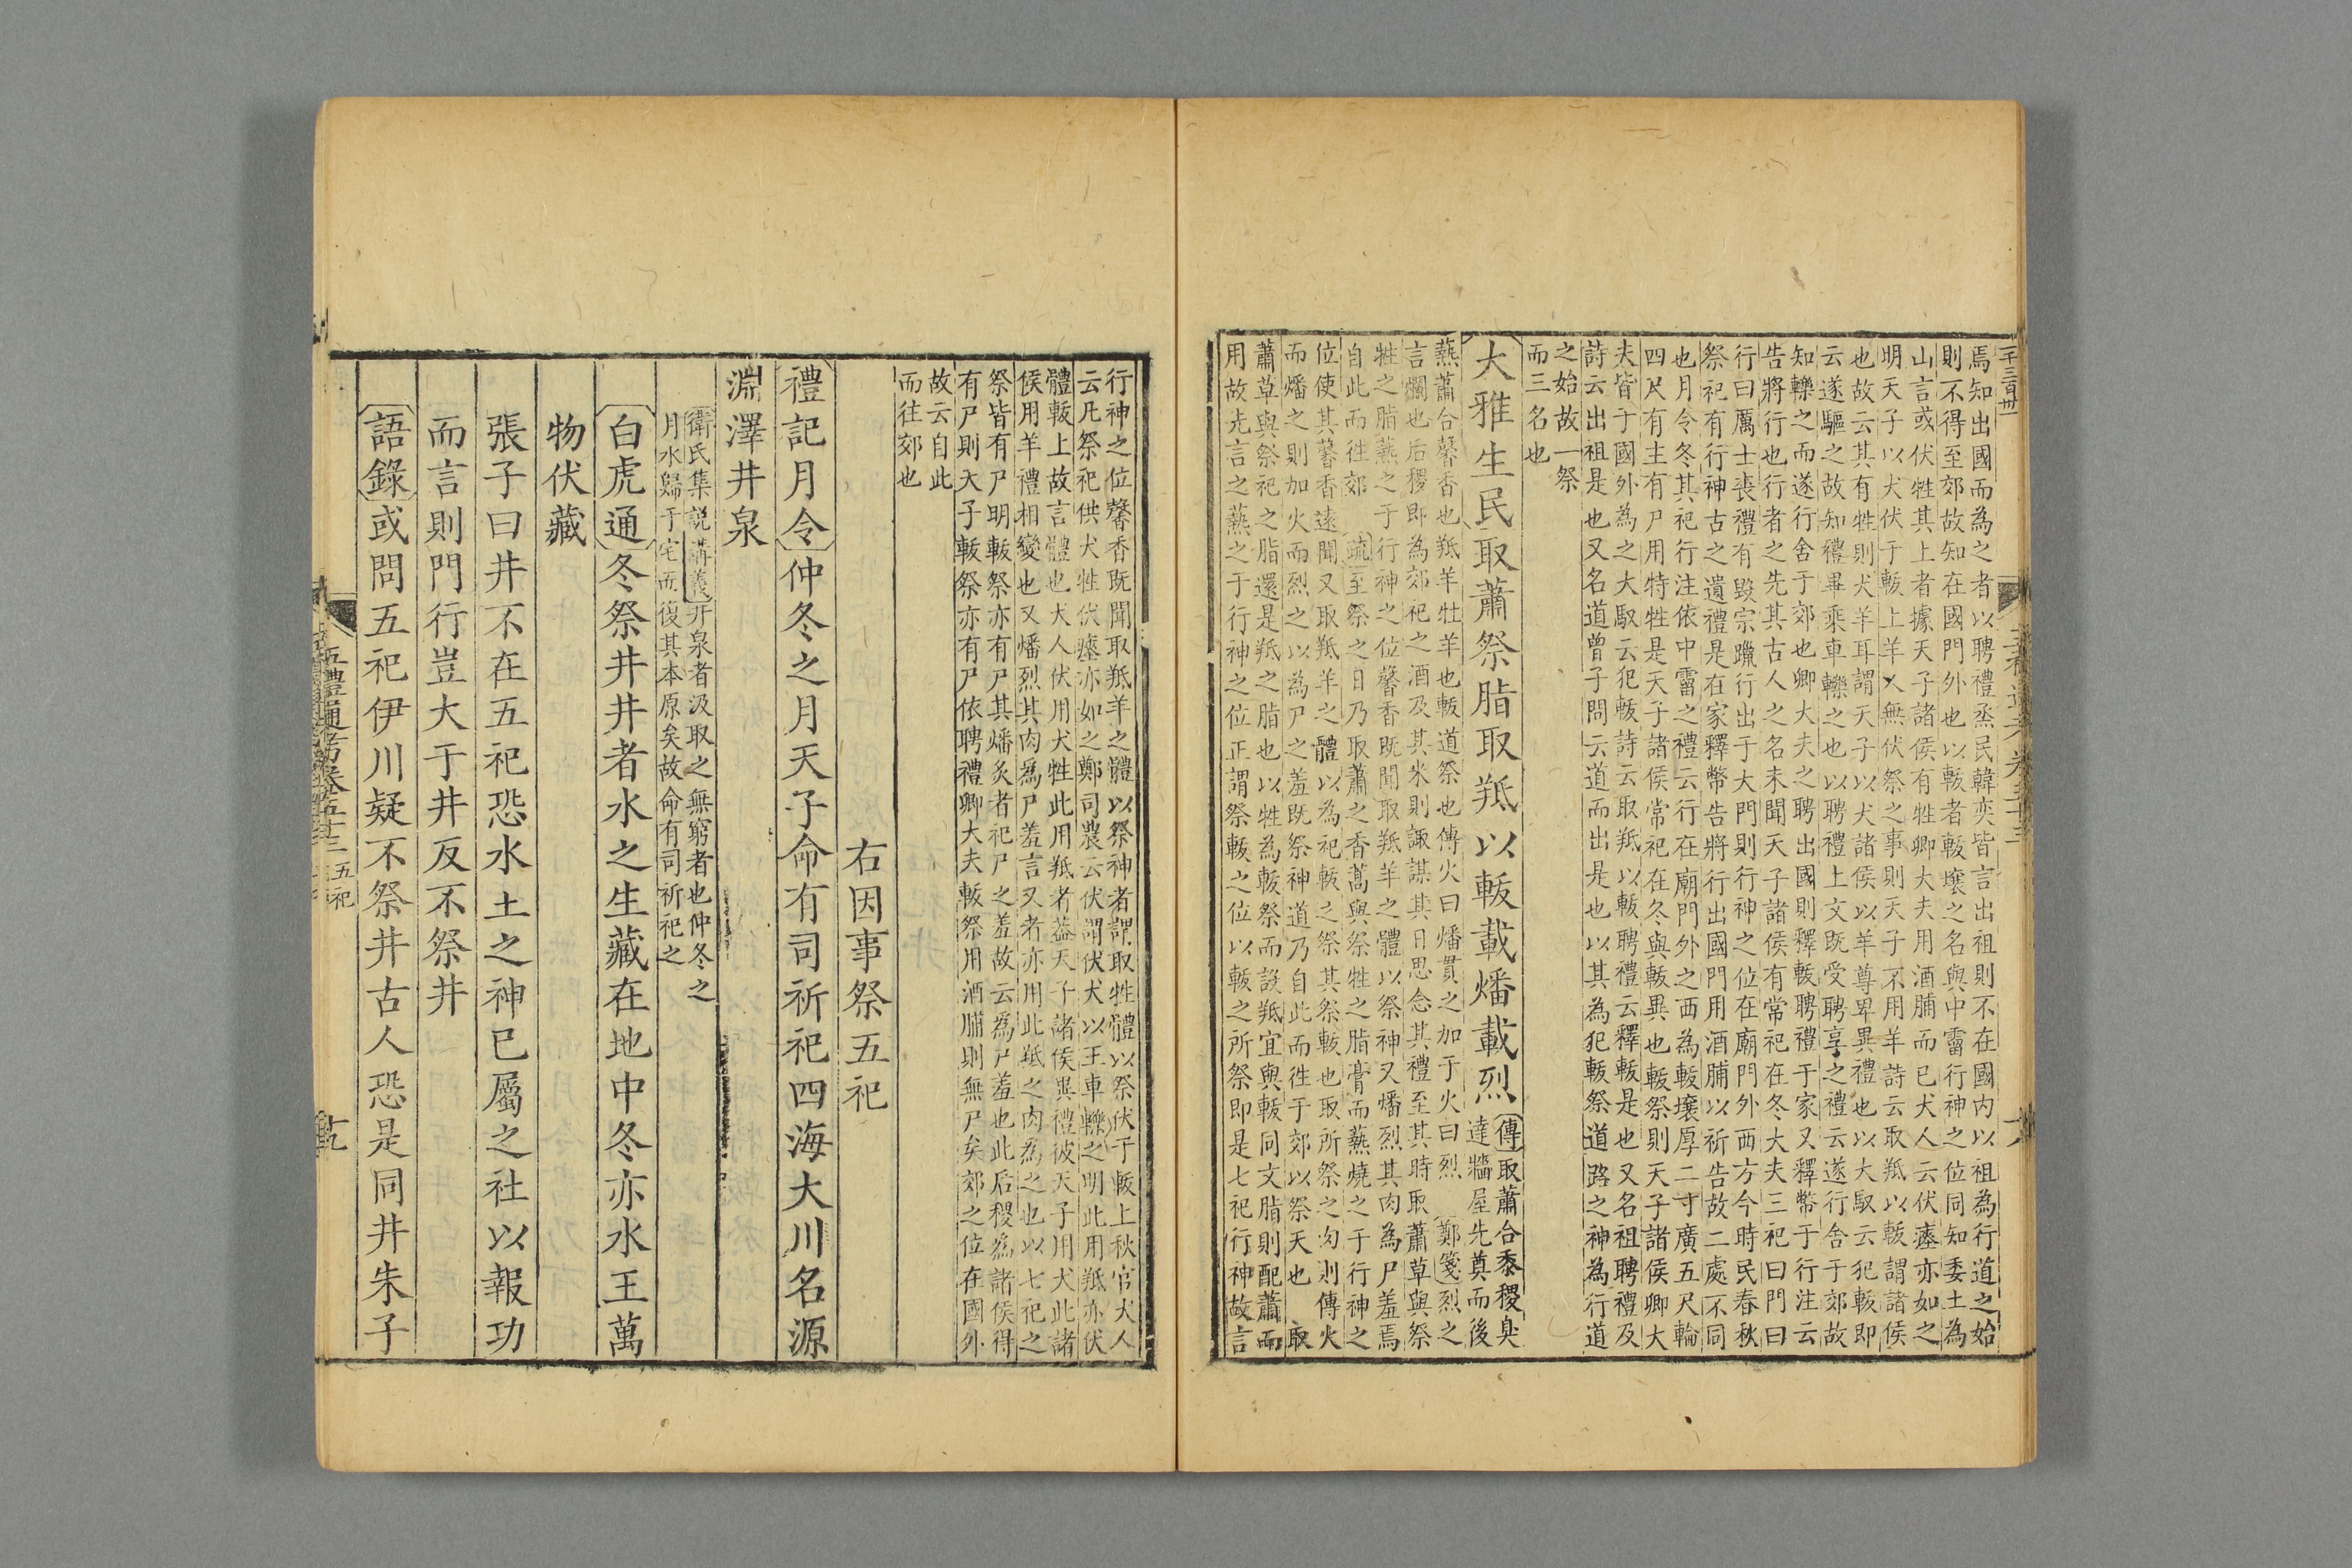 焉知出國而為之者以聘禮烝民韓奕皆言出祖則不在國內以祖為行道之始
則不得至郊故知在國門外也以軷者軷壤之名與中霤行神之位同知委土為
山言或伏牲其上者據天子諸侯有牲卿大夫用酒脯而已犬人云伏瘞亦如之
明天子以犬伏于軷上羊人無伏祭之事則天子不用羊詩云取羝以軷謂諸侯
也故云其有牲則犬羊耳謂天子以犬諸侯以羊尊卑異禮也以大馭云犯軷即
云遂驅之故知禮畢乘車轢之也以聘禮上文既受聘享之禮云遂行舍于郊故
知轢之而遂行舍于郊也卿大夫之聘出國則釋軷聘禮于家又釋幣于行注云
告將行也行者之先其古人之名未聞天子諸侯有常祀在冬大夫三祀曰門曰
行曰厲士喪禮有毀宗躐行出于大門則行神之位在廟門外西方今時民春秋
祭祀有行神古之遺禮是在家釋幣告將行出國門用酒脯以祈告故二處不同
也月令冬其祀行注依中霤之禮云行在廟門外之西為軷壤厚二寸廣五尺輪
四尺有主有尸用特牲是天子諸侯常祀在冬與軷異也軷祭則天子諸侯卿大
夫皆于國外為之大馭云犯軷詩云取羝以軷聘禮云釋軷是也又名祖聘禮及
詩云出祖是也又名道曾子問云道而出是也以其為犯軷祭道路之神為行道
之始故一祭
而三名也
大雅生民取蕭祭脂取羝以軷載燔載烈
傳取蕭合黍稷臭
達牆屋先奠而後
爇蕭合馨香也羝羊牡羊也軷道祭也傳火曰燔貫之加于火曰烈 鄭箋烈之
言爛也后稷即為郊祀之酒及其米則諏謀其日思念其禮至其時取蕭草與祭
牲之脂爇之于行神之位馨香既聞取羝羊之體以祭神又燔烈其肉為尸羞焉
自此而往郊 疏至祭之日乃取蕭之香蒿與祭牲之脂膏而爇燒之于行神之
位使其馨香遠聞又取羝羊之體以為祀軷之祭其祭軷也取所祭之肉則傳火
而燔之則加火而烈之以為尸之羞既祭神道乃自此而往于郊以祭天也 取
蕭草與祭祀之脂還是羝之脂也以牲為軷祭而設羝宜與軷同文脂則配蕭而
用故先言之爇之于行神之位正謂祭軷之位以軷之所祭即是七祀行神故言
行神之位馨香既聞取羝羊之體以祭神者謂取牲體以祭伏于軷上秋官犬人
云凡祭祀供犬牲伏瘞亦如之鄭司農云伏謂伏犬以王車轢之明此用羝亦伏
體軷上故言體也犬人伏用犬牲此用羝者蓋天子諸侯異禮彼天子用犬此諸
侯用羊禮相變也又燔烈其肉為尸羞言又者亦用此羝之肉為之也以七祀之
祭皆有尸明軷祭亦有尸其燔炙者祀尸之羞故云為尸羞也此后稷為諸侯得
有尸則天子軷祭亦有尸依聘禮卿大夫軷祭用酒脯則無尸矣郊之位在國外
故云自此
而往郊也
右因事祭五祀
禮記月令仲冬之月天子命有司祈祀四海大川名源
淵澤井泉
衛氏集説講義井泉者汲取之無窮者也仲冬之
月水歸于宅而復其本原矣故命有司祈祀之
白虎通冬祭井井者水之生藏在地中冬亦水王萬
物伏藏
張子曰井不在五祀恐水土之神已屬之社以報功
而言則門行豈大于井反不祭井
語錄或問五祀伊川疑不祭井古人恐是同井朱子
五禮通考卷五十三 五祀